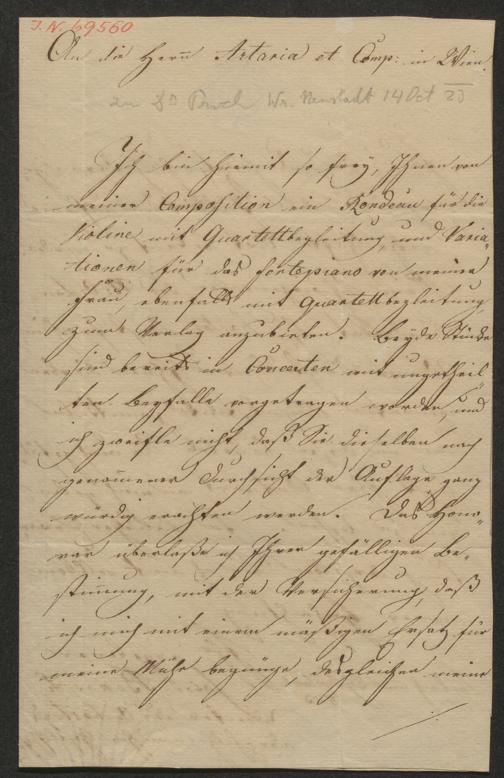 J.N. 69560
An die Herrn Artaria et Comp: in Wien.
Wr. Neustadt 14 Oct 25
Ich bin hiemit so frey, Ihnen von
meiner Composition ein Rondeau für die
Violine mit Quartettbegleitung, und Varia„
tionen für das Fortepiano von meiner
Frau, ebenfalls mit Quartettbegleitung
zum Verlag anzubieten. Beyde Stücke
sind bereits in Concerten mit ungetheil„
ten Beyfalle vorgetragen worden, und
ich zweifle nicht, daß Sie dieselben nach
genom̄ener Durchsicht der Auflage ganz
würdig erachten werden. Das Hono„
rar überlaße ich Ihrer gefälligen Be„
stim̄ung, mit der Versicherung, daß
ich mich mit einem mäßigen Ersatz für
meine Mühe begnüge, desgleichen meine